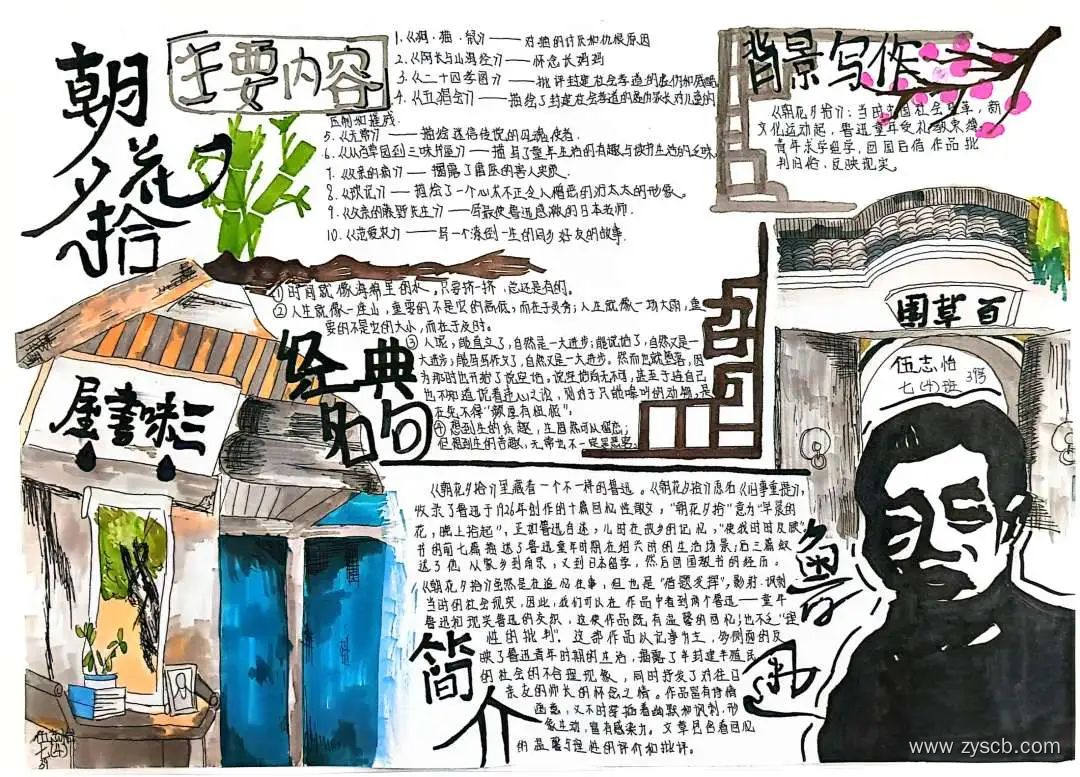 朝花夕拾
主要内容
1.《狗·猫·鼠》——对猫的讨厌和仇恨原因
2.《阿长与山海经》——怀念长妈妈
3.《二十四孝图》——批评封建社会孝道的虚伪和残酷
4.《五猖会》——描绘了封建社会孝道的虚伪家长对儿童的
压制和摧残.
5.《无常》——描绘迷信传说的勾魂使者.
6.《从百草园到三味书屋》——描写了童年生活的有趣与读书生活的乏味
7.《父亲的病》——揭露了庸医的害人实质.
8.《琐记》——描绘了一个心术不正令人憎恶的衍太太的形象.
9.《父亲的藤野先生》——写最使鲁迅感激的日本老师.
10.《范爱农》——写一个潦倒一生的同乡好友的故事.
背景写作
《朝花夕拾》:当时中国社会变革,新
文化运动起,鲁迅童年受礼教束缚,
青年求学留学,回国后借作品批
判旧俗,反映现实。
①时间就像海绵里的水,只要挤一挤,总还是有的。
②人生就像一座山,重要的不是它的高低,而在于灵秀;人生就像一场大雨,重
要的不是它的大小,而在于及时。
③人呢,能直立了,自然是一大进步;能说话了,自然又是一
大进步;能写字作文了,自然又是一大进步。然而也就堕落,因
为那时也开始了说空话,说空话尚无不可,甚至于连自己
也不知道说着违心之论,则对于只能嗥叫的动物,是
在免不得“颜厚有忸怩”。
④想到生的乐趣,生固然可以留恋;
但想到生的苦趣,无常也不一定是恶客。
经典名句
三味書屋
百草園
伍志怡
七(4)班 3号
《朝花夕拾》里藏着一个不一样的鲁迅。《朝花夕拾》原名《旧事重提》,
收录了鲁迅于1926年创作的十篇回忆性散文,“朝花夕拾”意为“早晨的
花,晚上拾起”,正如鲁迅自述,儿时在故乡的记忆,“使我时时反顾”
书的前七篇描述了鲁迅童年时期在绍兴时的生活场景;后三篇叙
述了他从家乡到南京,又到日本留学,然后回国教书的经历。
《朝花夕拾》虽然是在追忆往事,但也是“借题发挥”,影射、讽刺
当时的社会现实,因此,我们可以在作品中看到两个鲁迅——童年
鲁迅和现实鲁迅的交织,这使作品既有温馨的回忆;也不乏“理
性的批判”。这部作品以记事为主,多侧面的反
映了鲁迅青年时期的生活,揭露了半封建半殖民
的社会的不合理现象,同时抒发了对往日
亲友的师长的怀念之情。作品富有诗情
画意,又不时穿插着幽默和讽刺,形
象生动,富有感染力。文章包含着回忆
的温馨与理性的评价和批评。
简介
鲁迅
www.zyscb.com